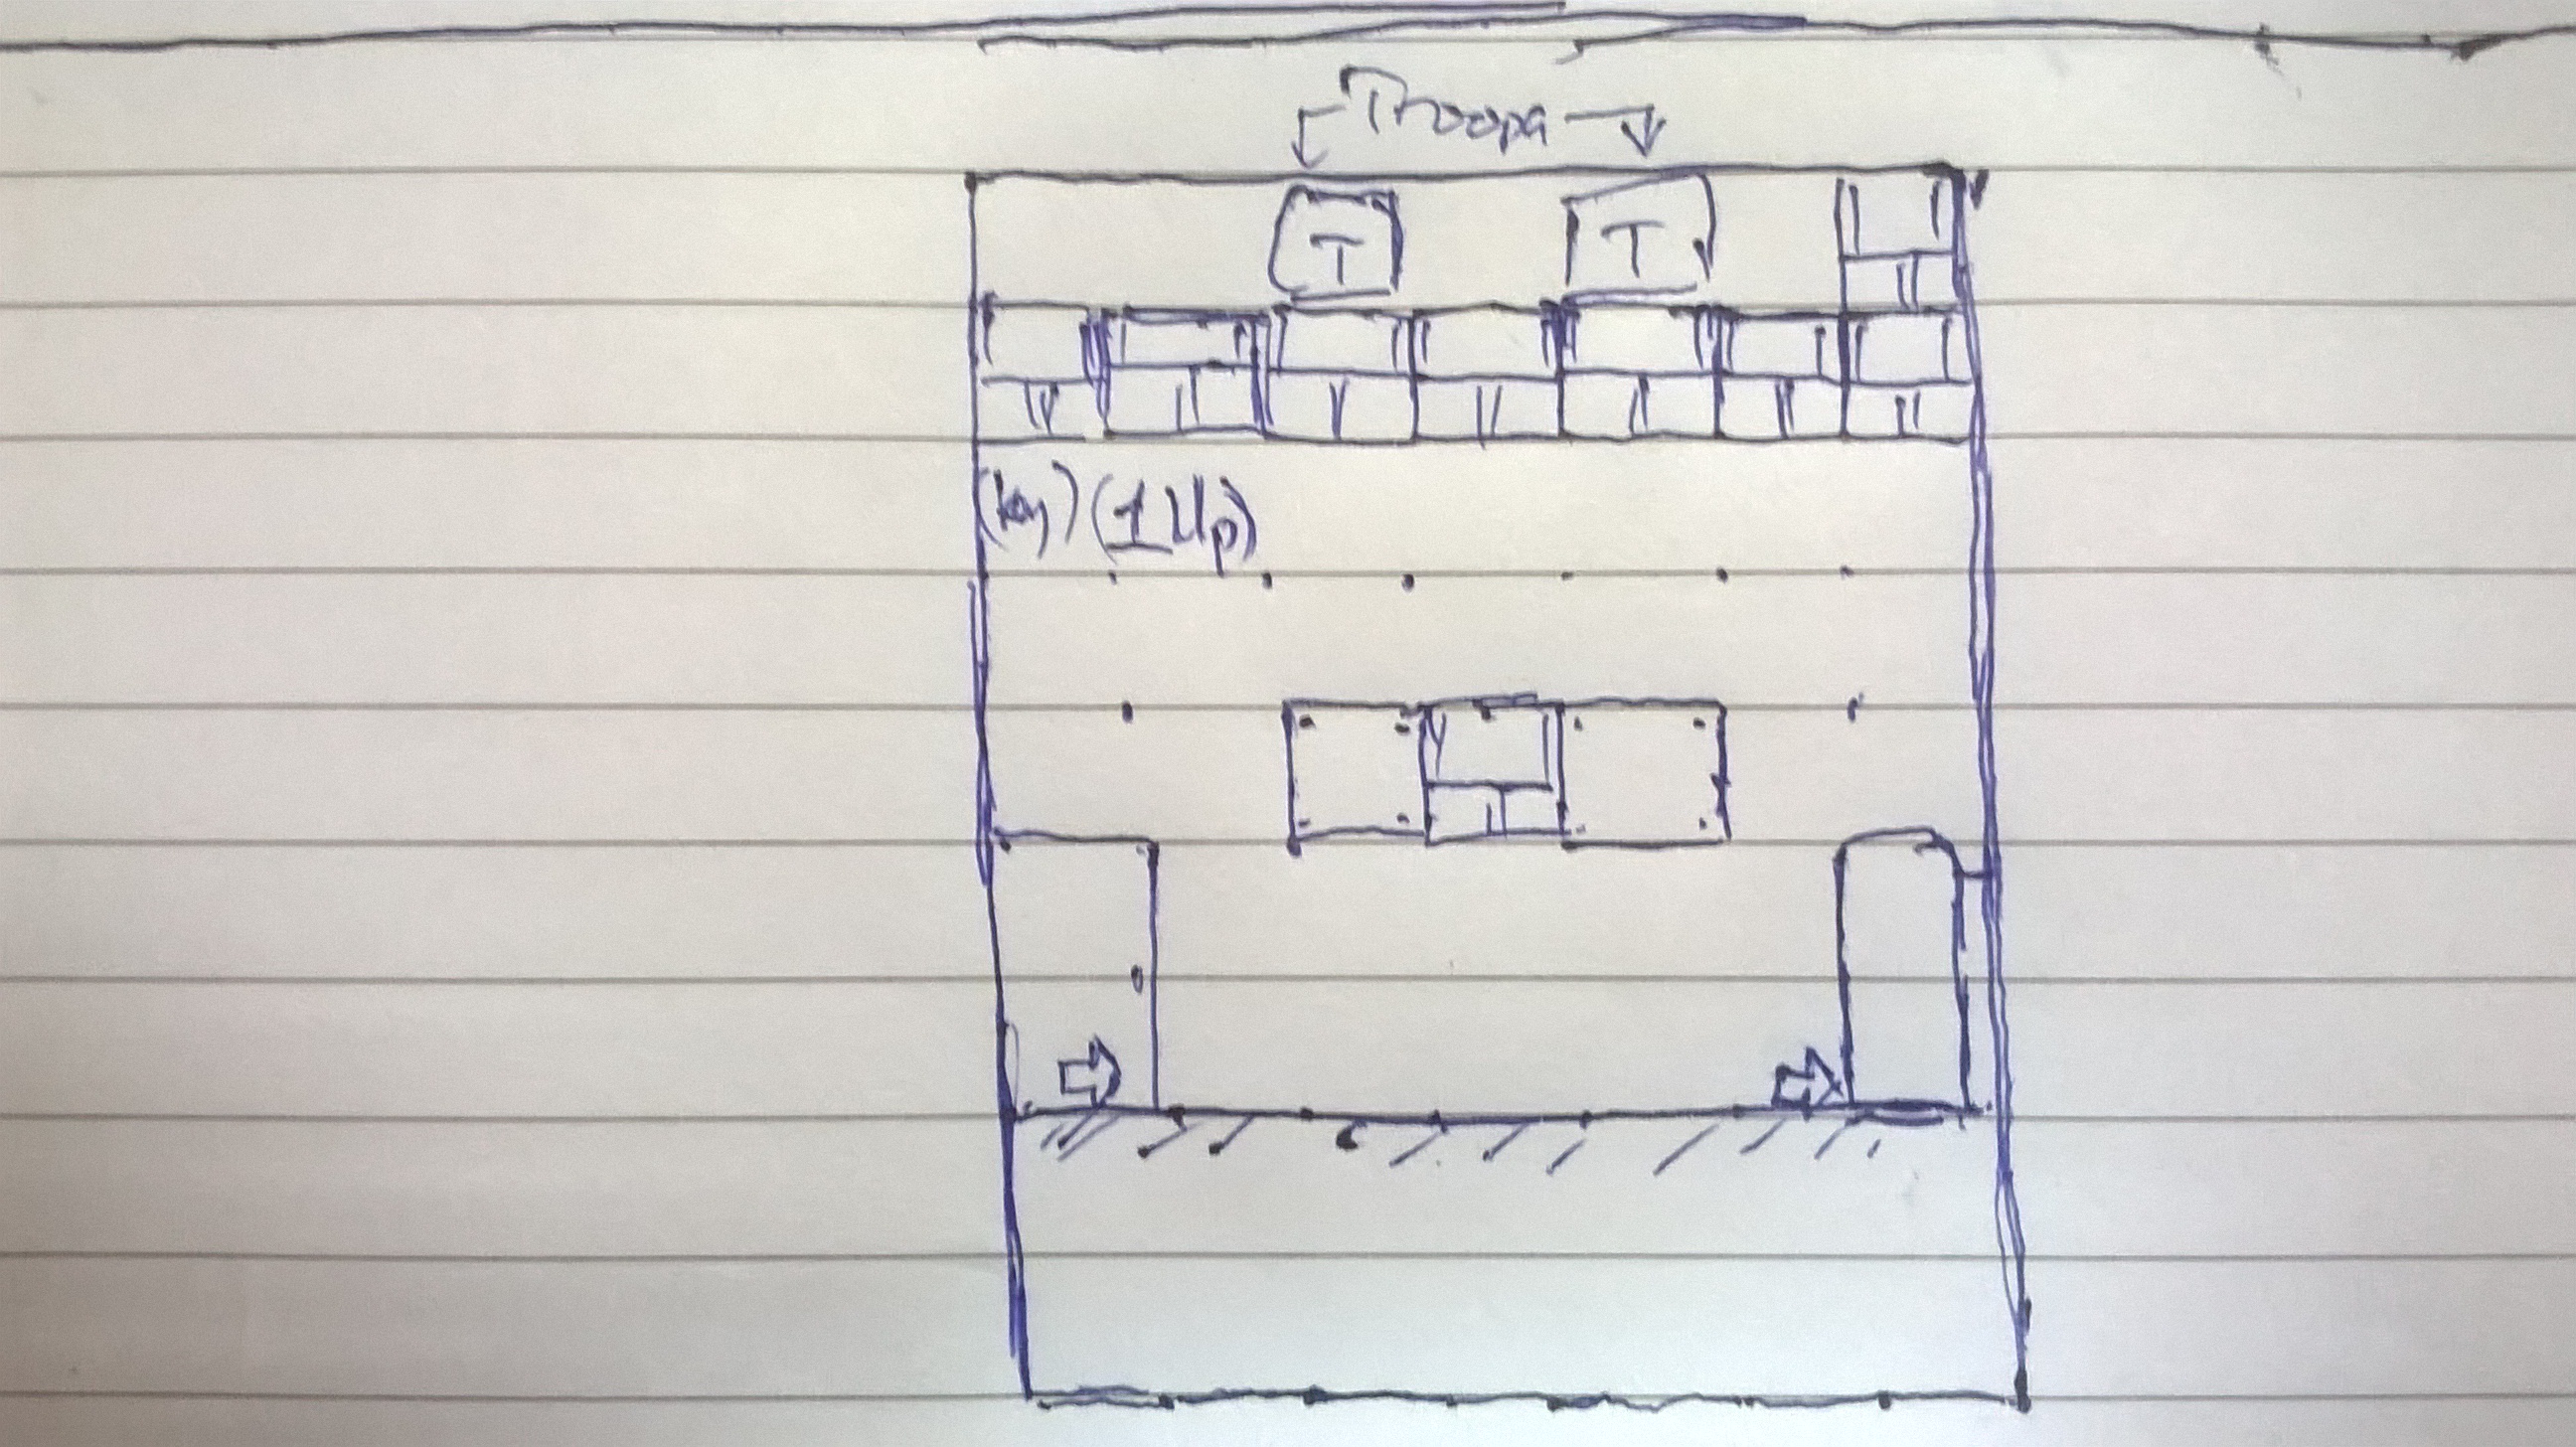 Troopa
T T
(key) (1 Up)